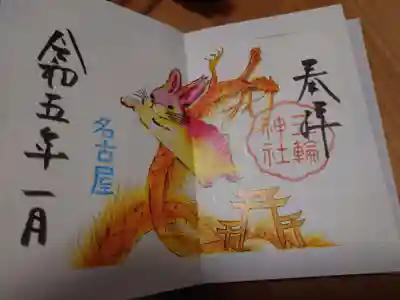 奉拝
三輪
神社
名古屋
令和五年一月